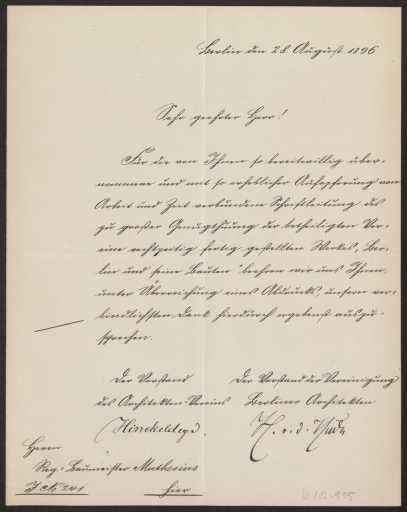 Berlin den 28. August 1896
Sehr geehrter Herr!
Für die von Ihnen so bereitwillig über-
nommene und mit so erheblicher Aufopferung von
Arbeit und Zeit verbundene Schriftleitung des
zu großer Genugthuung der betheiligten Ver-
eine rechtzeitig fertig gestellten Werkes, Ber-
lin und seine Bauten beehren wir uns Ihnen,
unter Überreichung eines Abdrucks, unsern ver-
bindlichsten Dank hierdurch ergebenst auszu-
sprechen.
Der Vorstand
des Architekten-Vereins
Hinckeldeyn.
Der Vorstand der Vereinigung
Berliner Architekten
H. v. d. Hude
Herrn
Reg.-Baumeister Muthesius
hier